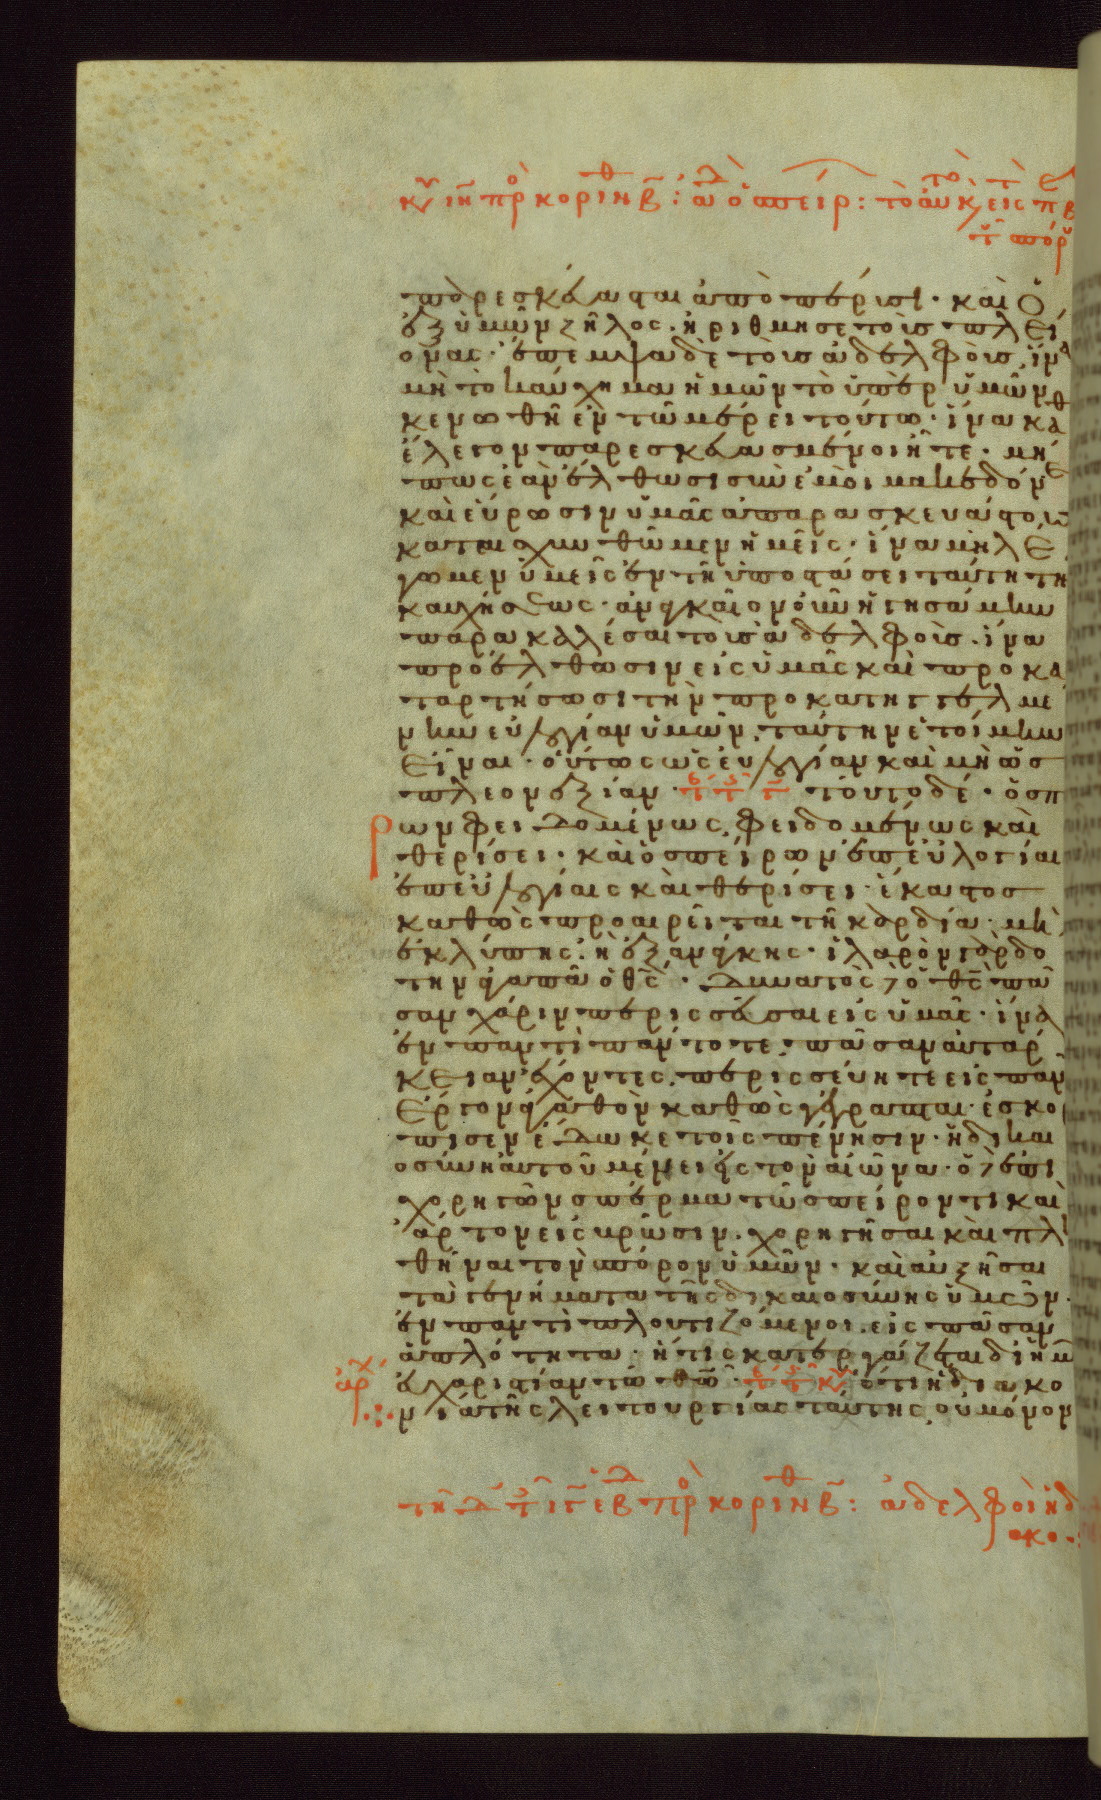 κυ ιη πρ κοριν β: ἀδ ὁ σπείρ: τὸ ἀνκ εἰς
παρεσκεύασται ἀπὸ πέρυσι· καὶ ὁ
ἐξ ὑμῶν ζῆλος· ἠρίθμησε τοὺς πλεί
ονας· ἔπεμψα δὲ τοὺς ἀδελφοὺς ἵνα
μὴ τὸ καύχημα ἡμῶν τὸ ὑπὲρ ὑμῶν
κενωθῆ ἐν τῶ μέρει τούτω· ἵνα καθ
ἔλεγον παρεσκευασμένοι ἦτε· μή
πως ἐὰν ἔλθωσι σὺν ἐμοὶ μακεδόνε
καὶ εὕρωσιν ὑμᾶς ἀπαρασκευάστου
καταισχυνθῶμεν ἡμεῖς· ἵνα μὴ λέ
γωμεν ὑμεῖς ἐν τῆ ὑποστάσει ταύτη τη
καυχήσεως· ἀναγκαῖον οὖν ἡγησάμην
παρακαλέσαι τοὺς ἀδελφοὺς· ἵνα
προέλθωσιν εἰς ὑμᾶς καὶ προκα
ταρτήσωσι τὴν προκατηγγελμέ
νην εὐλογίαν ὑμῶν· ταύτην ἑτοίμην
εἶναι· οὕτως ὡς εὐλογίαν καὶ μὴ ὡς
πλεονεξίαν· τοῦτο δέ· ὁ σπ
ρων φειδομένως φειδομένως καὶ
θερίσει· καὶ ὁ σπείρων ἐπ εὐλογίαι
ἐπ εὐλογίαις καὶ θερίσει· ἕκαστος
καθὼς προαιρεῖται τῆ καρδία· μὴ
ἐκ λύπης· ἢ ἐξ ἀνάγκης· ἱλαρὸν γὰρ δο
την ἀγαπᾶ ὁ θς· δυνατὸς δὲ ὁ θς πᾶ
σαν χάριν περισσεῦσαι εἰς ὑμᾶς· ἵνα
ἐν παντὶ πάντοτε πᾶσαν αὐτάρ
κειαν ἔχοντες· περισσεύητε εἰς πᾶν
ἔργον ἀγαθὸν καθὼς γέγραπται· ἐσκόρ
πισεν ἔδωκε τοῖς πένησιν· ἡ δικαι
οσύνη αὐτοῦ μένει εἰς τὸν αἰῶνα· ὁ δὲ ἐπι
χορηγῶν σπέρμα τῶ σπείροντι καὶ
ἄρτον εἰς βρῶσιν· χορηγῆσαι καὶ πλη
θῆναι τὸν σπόρον ὑμῶν· καὶ αὐξῆσαι
τὰ γενήματα τῆς δικαιοσύνης ὑμῶν·
ἐν παντὶ πλουτιζόμενοι εἰς πᾶσαν
ἁπλότητα· ἥτις κατεργάζεται δι ἡμ
ἀρχ εὐχαριστίαν τῶ θῶ· ὅτι ἡ διακο
νία τῆς λειτουργίας ταύτης οὐ μόνον
πρ κοριν β: ἀδελφοὶ ἡ δ
ακο